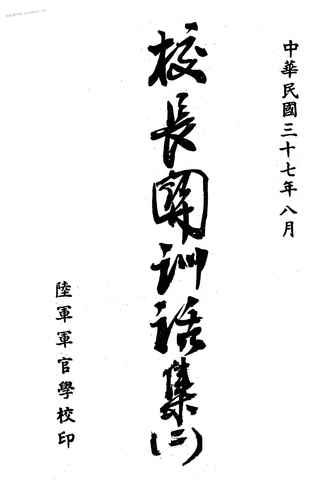 中華民國三十七年八月
校長關訓話集(二)
陸軍軍官學校印